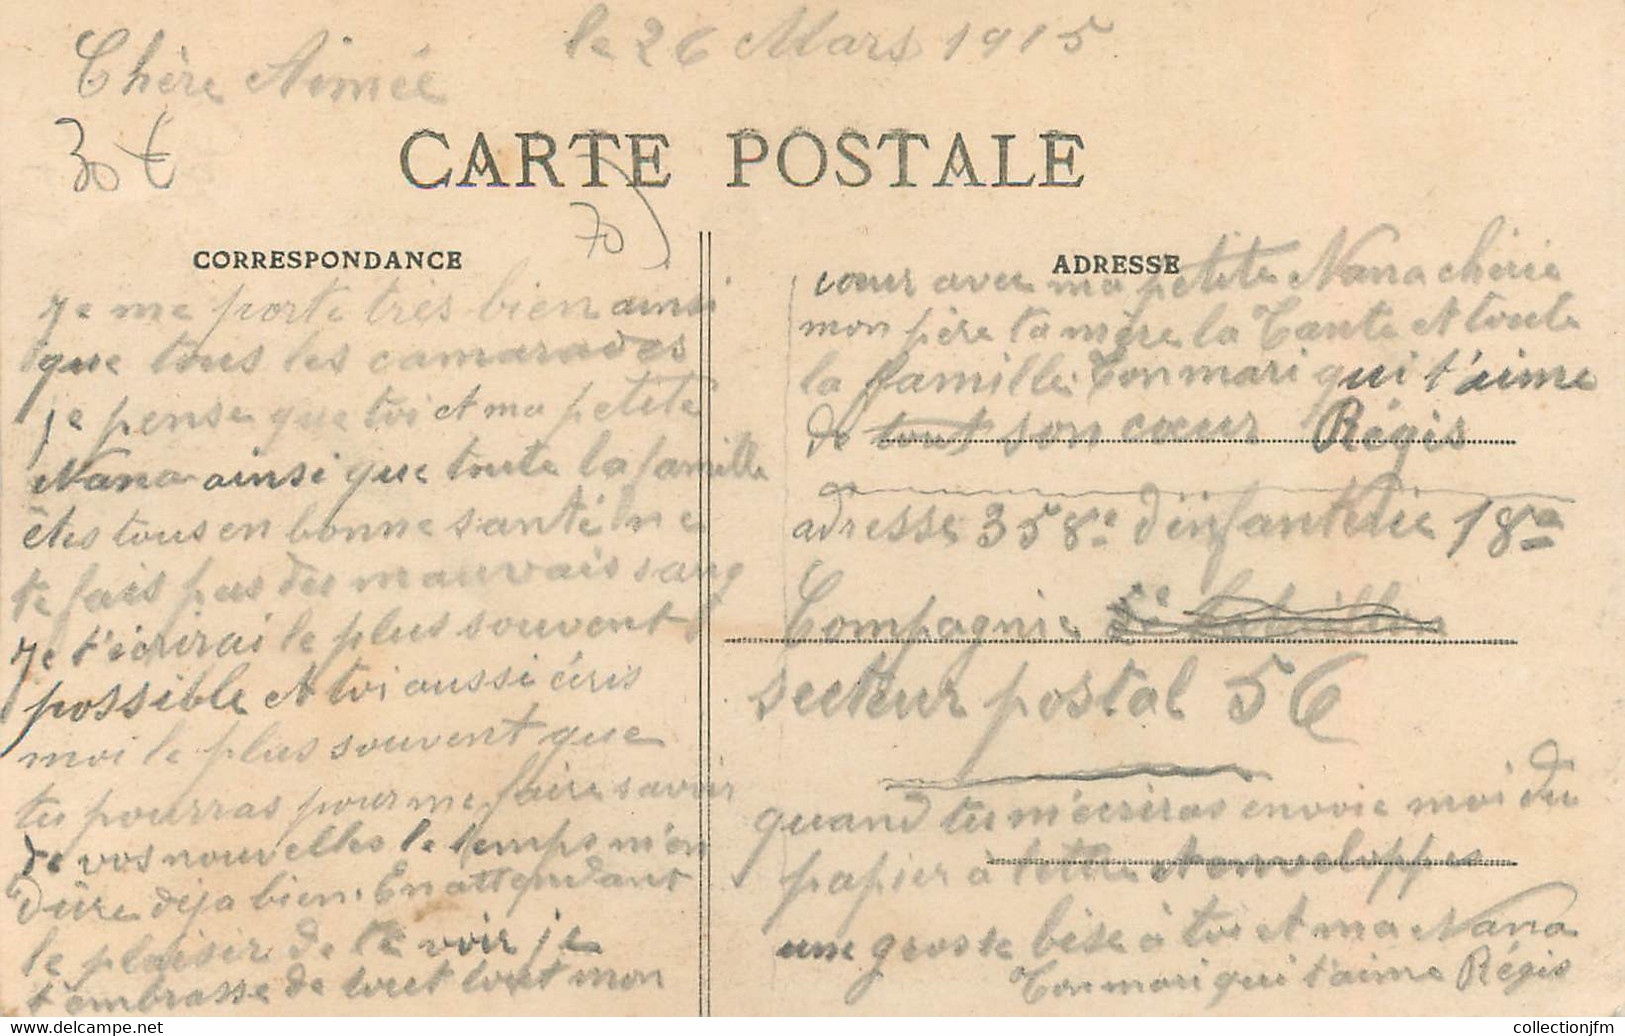 le 26 Mars 1915
Chère Aimée
30 €
CARTE POSTALE
70
CORRESPONDANCE
Je me porte très bien ainsi
que tous les camarades
je pense que toi et ma petite
Nana ainsi que toute la famille
êtes tous en bonne santé ne
te fais pas des mauvais sang
Je t'écrirai le plus souvent
possible et toi aussi écris
moi le plus souvent que
tu pourras pour me faire savoir
de vos nouvelles le temps m'en
dure déja bien. En attendant
le plaisir de te voir je
t'embrasse de tout tout mon
ADRESSE
cœur avec ma petite Nana chérie
mon père ta mère la Tante et toute
la famille. Ton mari qui t'aime
de tout son cœur Régis
adresse 358e d'infanterie 18e
Compagnie
secteur postal 56
quand tu m'écriras envoie moi du
papier à lettre et enveloppes
une grosse bise à toi et ma Nana
Ton mari qui t'aime Régis
collectionjfm